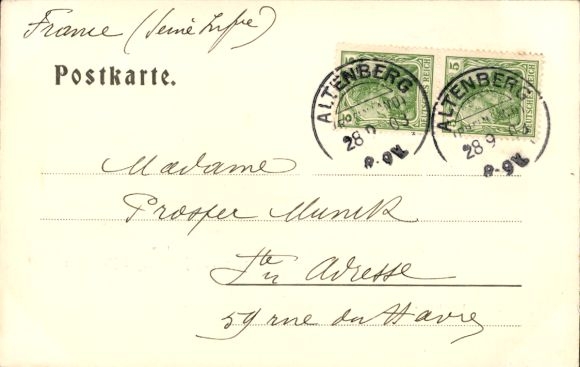 France (Seine Infre)
Postkarte.
5 DEUTSCHES REICH
5 DEUTSCHES REICH
ALTENBERG
28 9
8-9N
ALTENBERG
28 9
8-9N
Madame
Prosper Munck
Ste Adresse
59 rue du Havre